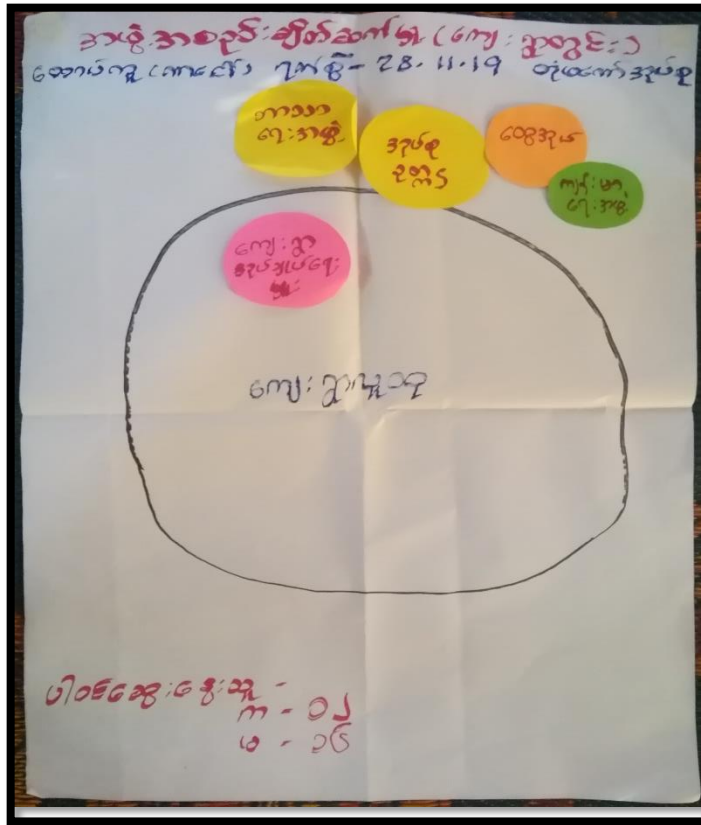 အဖွဲ့အစည်းချိတ်ဆက်မှု (ကျေးရွာတွင်း)
ရက်စွဲ - 28.11.19 အုပ်စု
ဘာသာ
ရေးအဖွဲ့
အုပ်စု
ဥက္ကဋ္ဌ
ထွေအုပ်
ကျန်းမာ
ရေးအဖွဲ့
ကျေးရွာ
အုပ်ချုပ်ရေး
မှူး
ကျေးရွာလူထု
ပါဝင်ဆွေးနွေးသူ -
က - ၁၂
မ - ၁၆